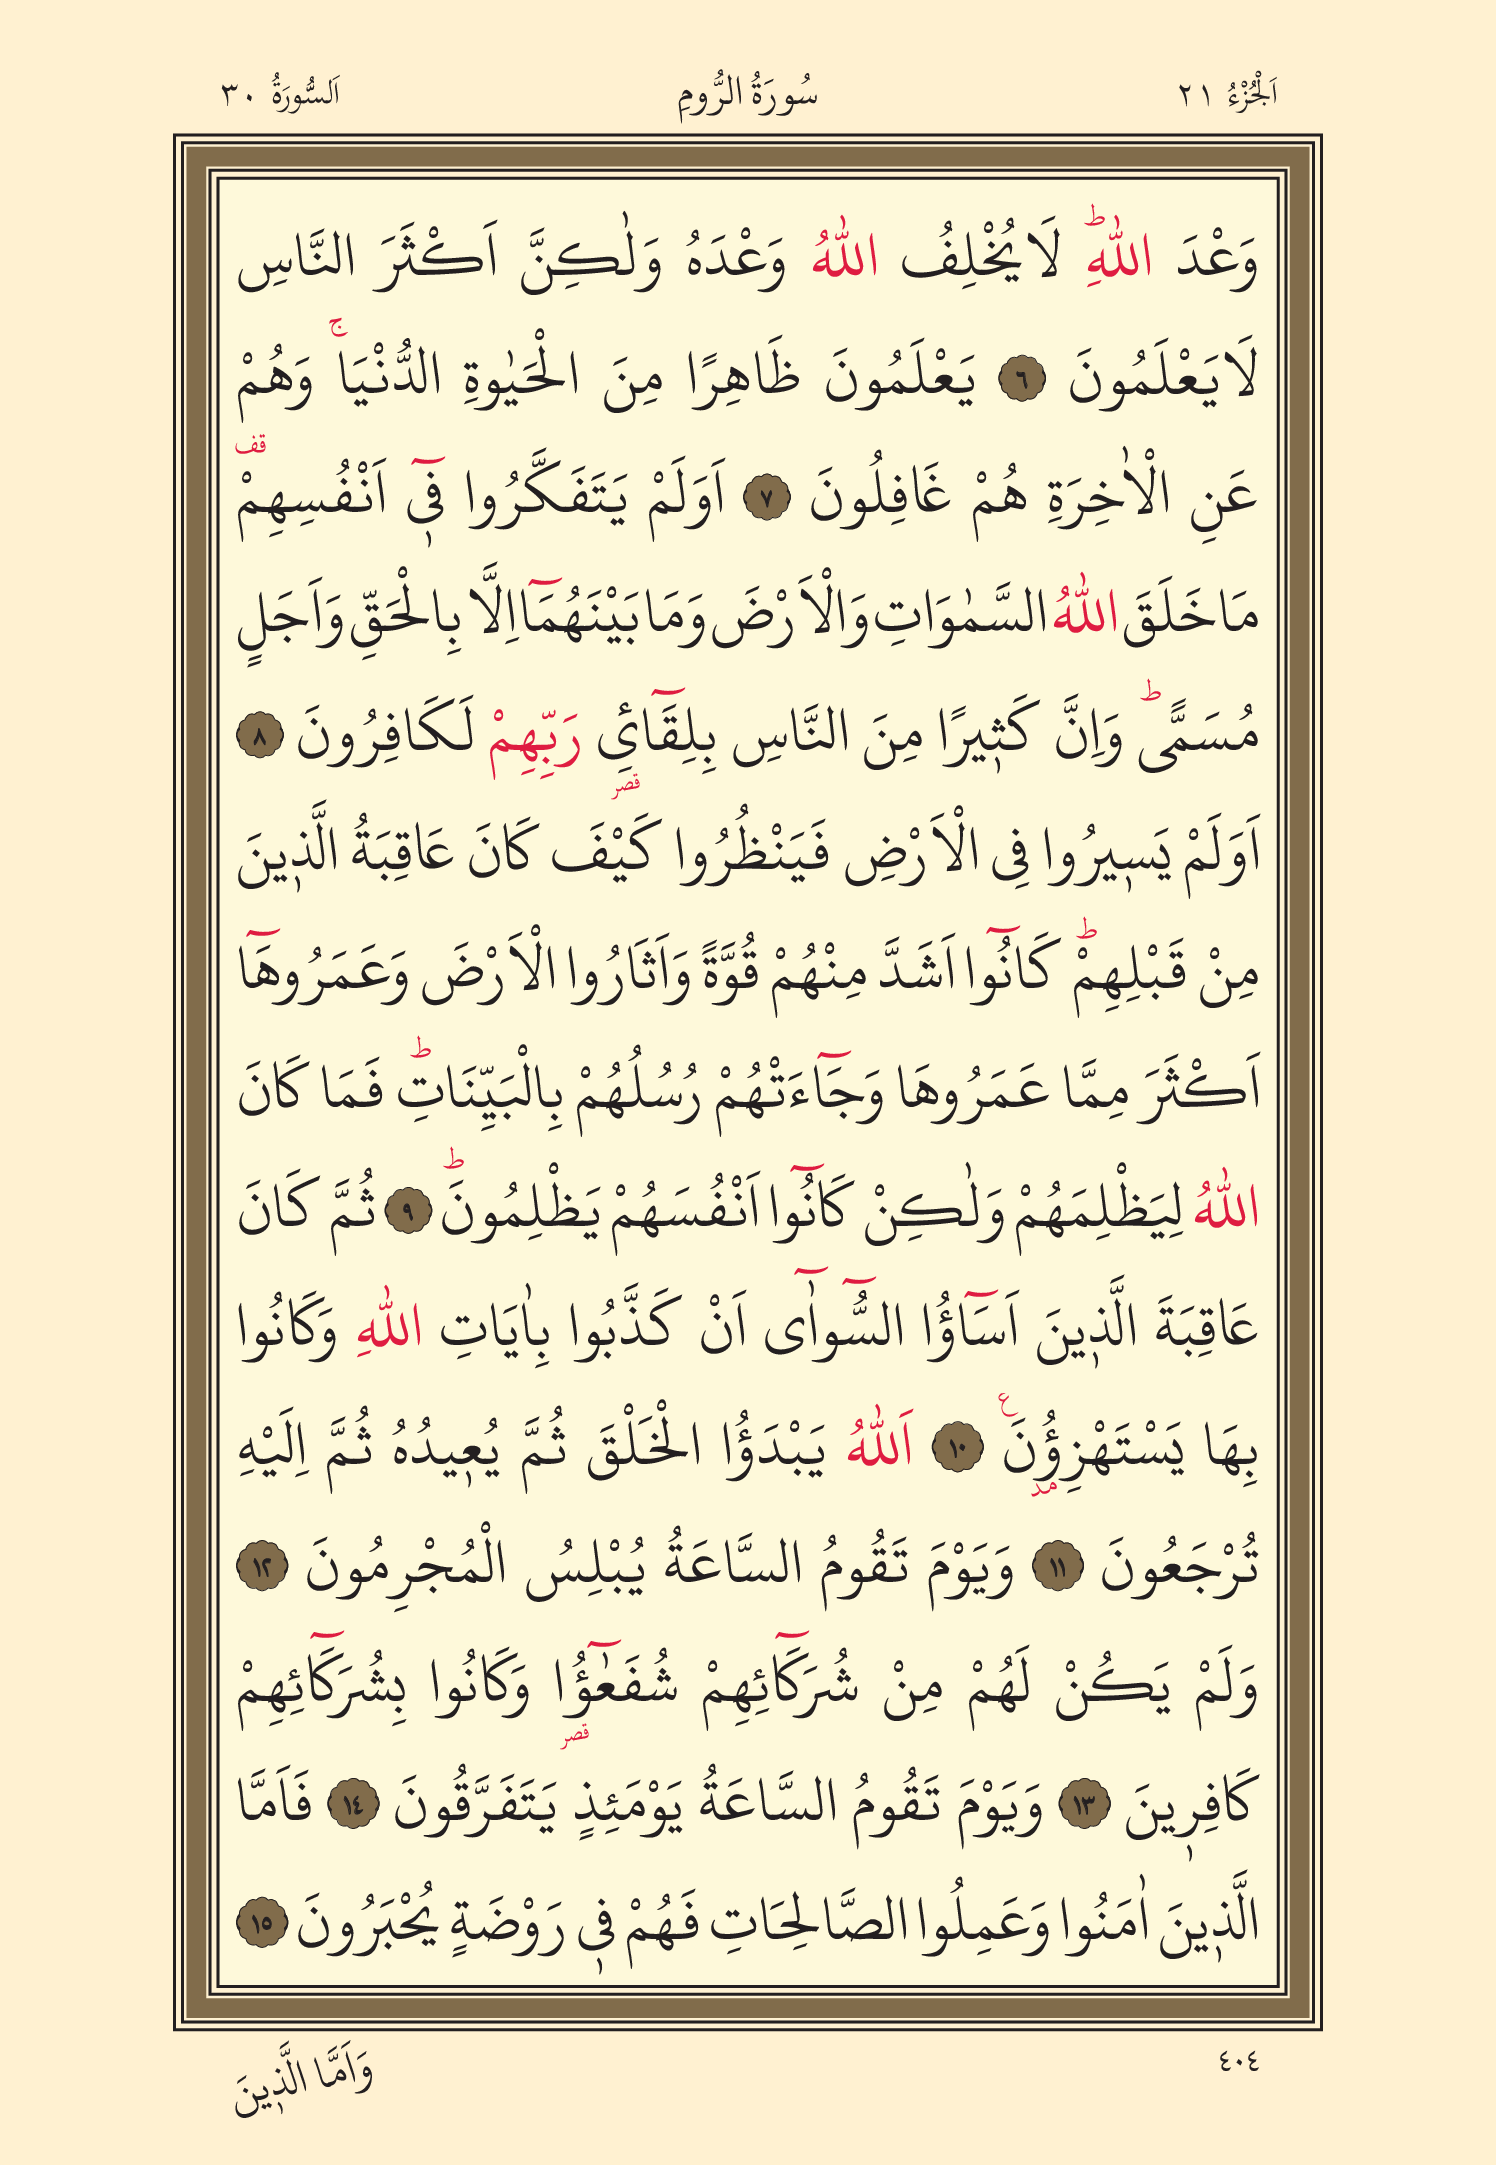 اَلْجُزْءُ ٢١ سُورَةُ الرُّومِ اَلسُّورَةُ ٣٠
وَعْدَ اللّٰهِۜ لَا يُخْلِفُ اللّٰهُ وَعْدَهُ وَلٰكِنَّ اَكْثَرَ النَّاسِ
لَا يَعْلَمُونَ ﴿٦﴾ يَعْلَمُونَ ظَاهِرًا مِنَ الْحَيٰوةِ الدُّنْيَاۚ وَهُمْ
عَنِ الْاٰخِرَةِ هُمْ غَافِلُونَ ﴿٧﴾ اَوَلَمْ يَتَفَكَّرُوا فٖٓي اَنْفُسِهِمْ قف
مَا خَلَقَ اللّٰهُ السَّمٰوَاتِ وَالْاَرْضَ وَمَا بَيْنَهُمَٓا اِلَّا بِالْحَقِّ وَاَجَلٍ
مُسَمًّىۜ وَاِنَّ كَثٖيرًا مِنَ النَّاسِ بِلِقَٓائِ۬ رَبِّهِمْ لَكَافِرُونَ ﴿٨﴾
قصر
اَوَلَمْ يَسٖيرُوا فِي الْاَرْضِ فَيَنْظُرُوا كَيْفَ كَانَ عَاقِبَةُ الَّذٖينَ
مِنْ قَبْلِهِمْۜ كَانُٓوا اَشَدَّ مِنْهُمْ قُوَّةً وَاَثَارُوا الْاَرْضَ وَعَمَرُوهَٓا
اَكْثَرَ مِمَّا عَمَرُوهَا وَجَٓاءَتْهُمْ رُسُلُهُمْ بِالْبَيِّنَاتِۜ فَمَا كَانَ
اللّٰهُ لِيَظْلِمَهُمْ وَلٰكِنْ كَانُٓوا اَنْفُسَهُمْ يَظْلِمُونَۜ ﴿٩﴾ ثُمَّ كَانَ
عَاقِبَةَ الَّذٖينَ اَسَٓاؤُا السُّٓوآٰى اَنْ كَذَّبُوا بِاٰيَاتِ اللّٰهِ وَكَانُوا
بِهَا يَسْتَهْزِؤُنَ ع ﴿١٠﴾ اَللّٰهُ يَبْدَؤُا الْخَلْقَ ثُمَّ يُعٖيدُهُ ثُمَّ اِلَيْهِ
مد
تُرْجَعُونَ ﴿١١﴾ وَيَوْمَ تَقُومُ السَّاعَةُ يُبْلِسُ الْمُجْرِمُونَ ﴿١٢﴾
وَلَمْ يَكُنْ لَهُمْ مِنْ شُرَكَٓائِهِمْ شُفَعٰٓؤُ۬ا وَكَانُوا بِشُرَكَٓائِهِمْ
قصر
كَافِرٖينَ ﴿١٣﴾ وَيَوْمَ تَقُومُ السَّاعَةُ يَوْمَئِذٍ يَتَفَرَّقُونَ ﴿١٤﴾ فَاَمَّا
الَّذٖينَ اٰمَنُوا وَعَمِلُوا الصَّالِحَاتِ فَهُمْ فٖي رَوْضَةٍ يُحْبَرُونَ ﴿١٥﴾
٤٠٤
وَاَمَّا الَّذٖينَ